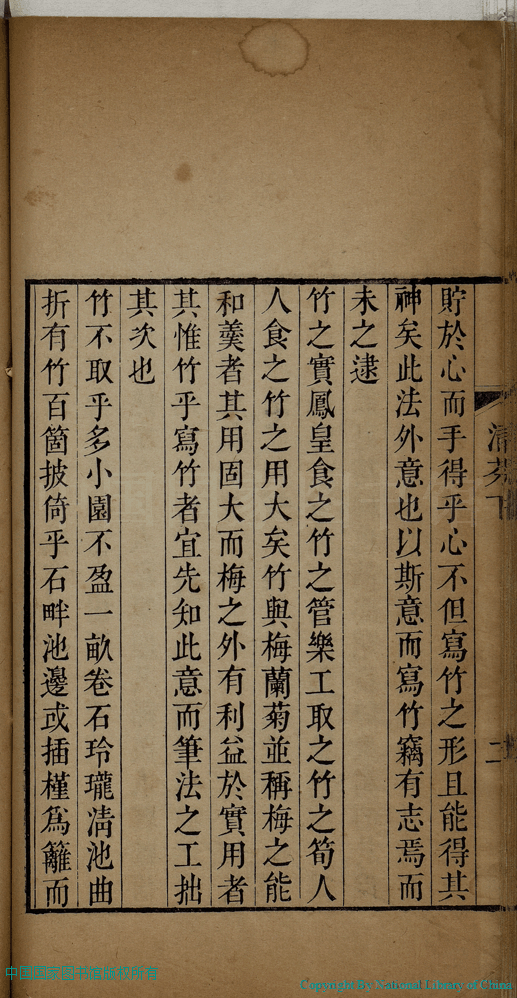 清芬下
二
貯於心而手得乎心不但寫竹之形且能得其
神矣此法外意也以斯意而寫竹竊有志焉而
未之逮
竹之實鳳皇食之竹之管樂工取之竹之筍人
人食之竹之用大矣竹與梅蘭菊並稱梅之能
和羹者其用固大而梅之外有利益於實用者
其惟竹乎寫竹者宜先知此意而筆法之工拙
其次也
竹不取乎多小園不盈一畝卷石玲瓏淸池曲
折有竹百箇披倚乎石畔池邊或插槿爲籬而
Copyright By National Library of China